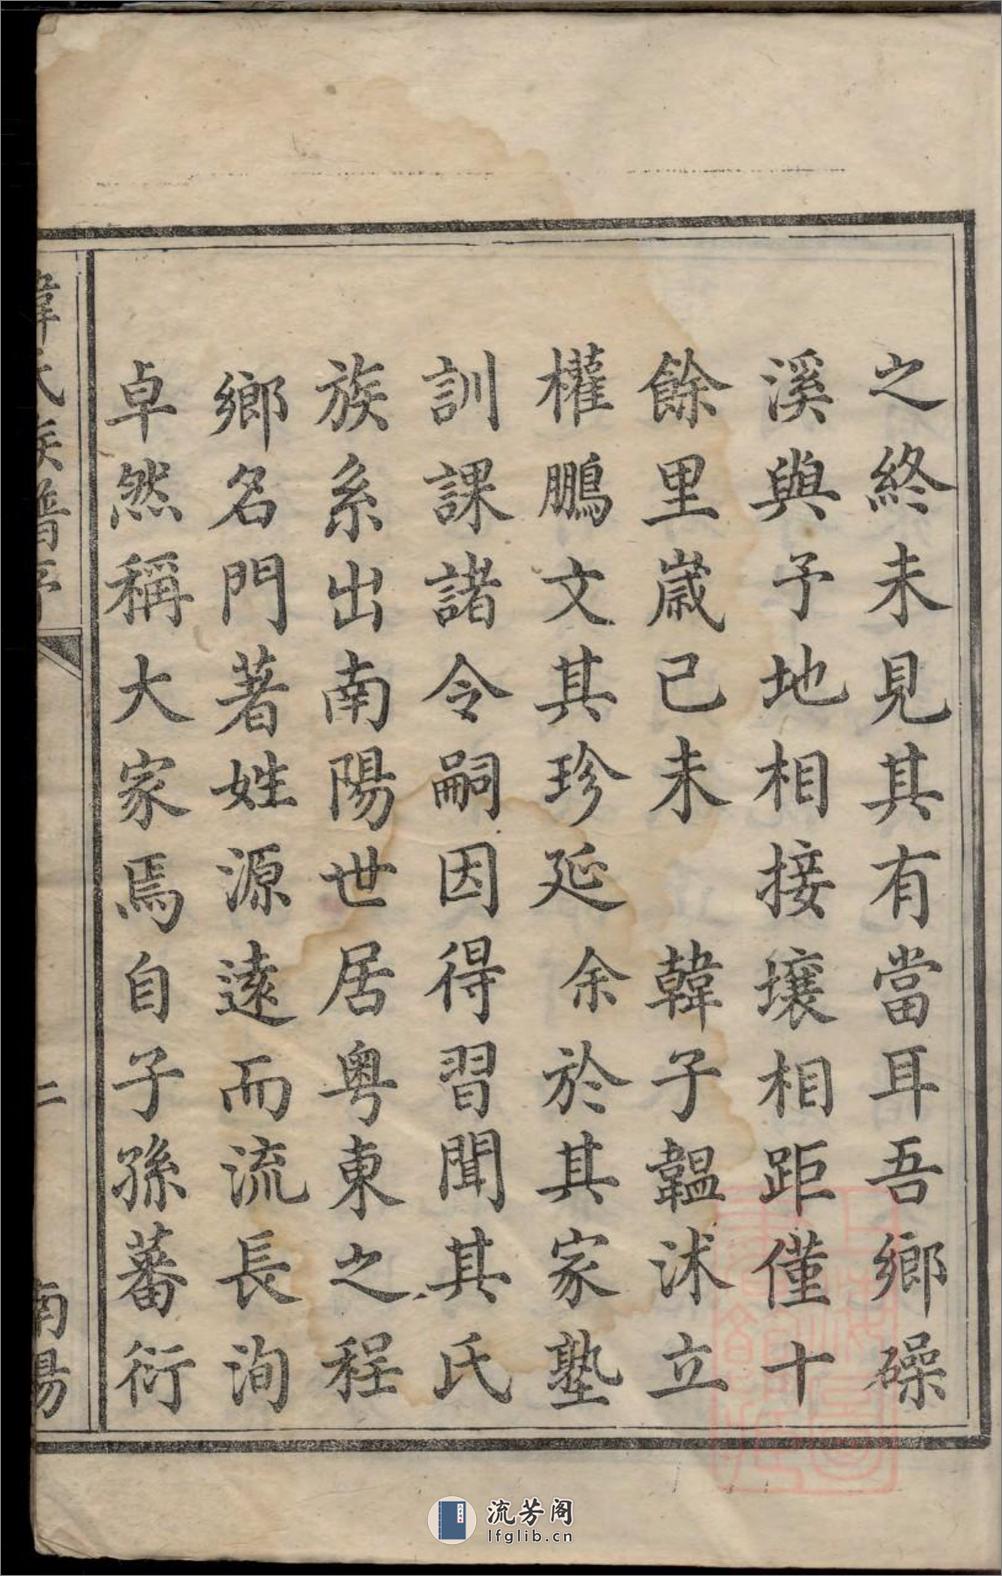 之終未見其有當耳吾鄉礤
溪與予地相接壤相距僅十
餘里嵗己未韓子韞沭立
權鵬文其珍延余於其家塾
訓課諸令嗣因得習聞其氏
族系出南陽世居粤東之程
鄉名門著姓源逺而流長洵
卓然稱大家焉自子孫蕃衍
韓氏族譜序
二
南陽
流芳阁
lfglib.cn